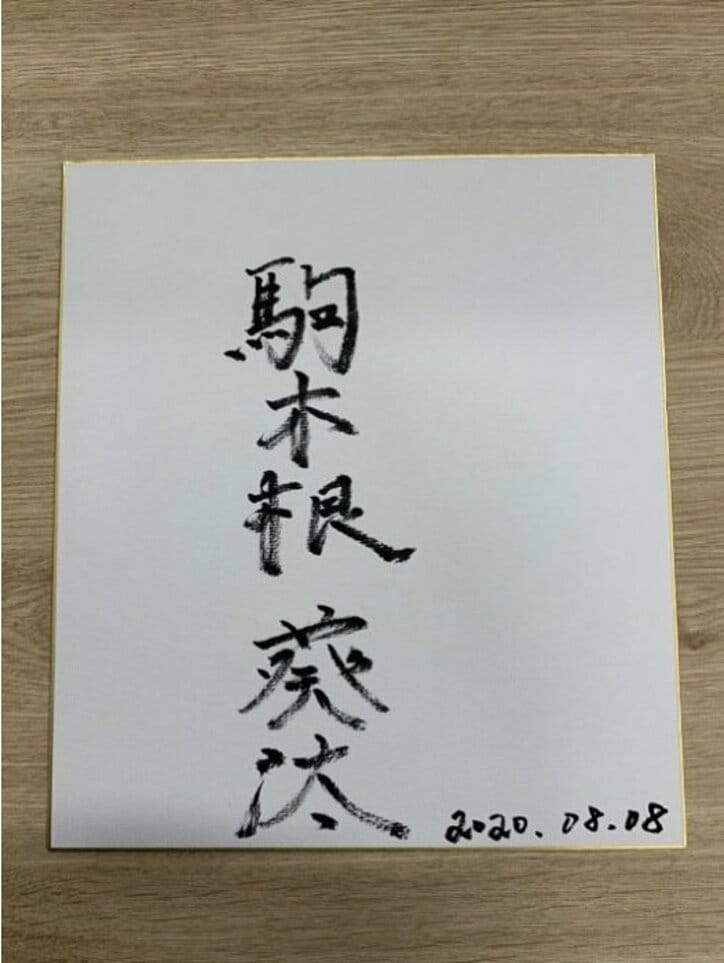 駒木根葵汰
2020.08.08